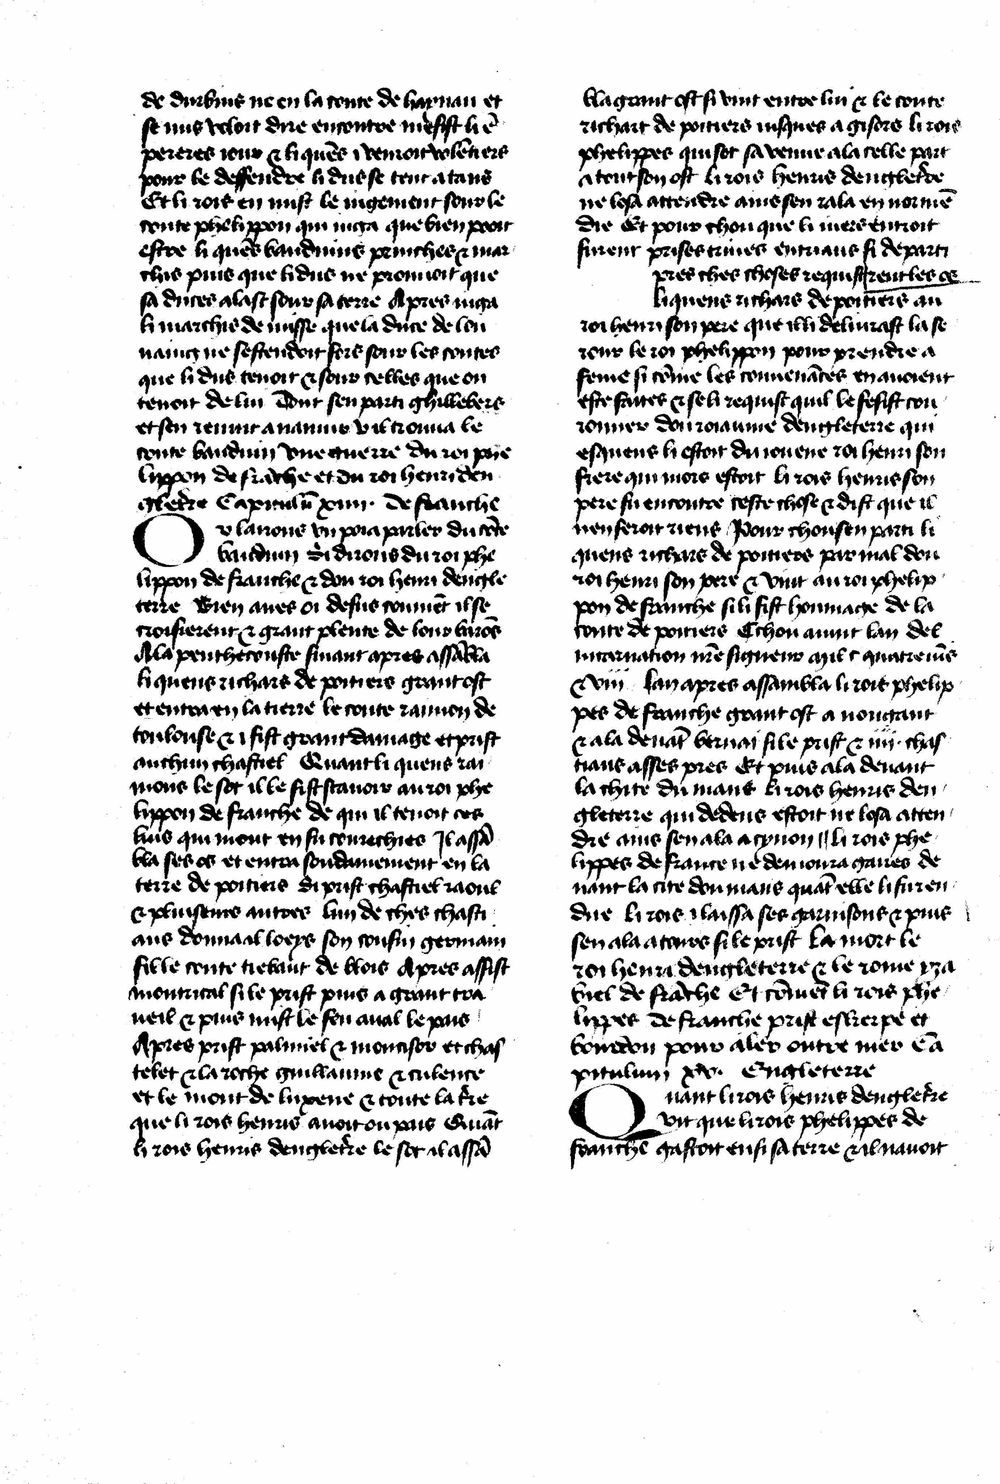 de durbuis ne en la conte de haynau et
se nus veloit dire encontre
pereres iour & li quens i venroit volentiers
pour le deffendre li dus se tent a tans
Et li rois en mist le iugement sour le
conte phelippon qui iuga que bien pooit
estre li quēs bauduins princhez & mar
chis puis que li dus ne prouuoit que
sa ducee alast sour sa terre Apres iuga
li marchis de misse que la ducee de lou
uaing ne sestendoit fors sour les contes
que li dus tenoit & sour celles que on
tenoit de lui Dont sen parti ghillebers
et sen reuint a namur v il trouua le
conte bauduin Vne guerre du roi phe
lippon de frāche et du roi henri den
gletre Capitulū xiiii. De franche
Or lairons vn poi a parler du cōte
bauduin Si dirons du roi phe
lippon de franche & dou roi henri dengle
terre Bien aues oi desus commēt il se
croisierent & grant plente de lour barōs
A la penthecouste siuant apres assābla
li quens richars de poitiers grant ost
et entra en la tierre le conte raimon de
toulouse & i fist grant damage et prist
auchun chastiel Quant li quens rai
mons le sot il le fist scauoir au roi phe
lippon de franche de qui il tenoit ces
liuis qui mout en fu courechies Il assā
bla ses os et entra soudainement en la
terre de poitiers Si prist chastiel raoul
& pluiseurs autres lun de ches chasti
aus donna al loeys son cousin germain
fil le conte tiebaut de blois Apres assist
montrical si le prist puis a grant tra
ueil & puis mist le feu aual le pais
Apres prist palmiel & montisor et chas
telet & la roche guillaume & culence
et le mont de lixene & toute la tre
que li rois henris auoit ou pais Quāt
li rois henris dengletre le sot il assā
bla grant ost si vint entre lui & le conte
richart de poitiers iusques a gisors li rois
phelippes qui sot sa venue ala celle part
a tout son ost li rois henris dengletre
ne losa attendre ains sen rala en normē
die Et pour chou que li iuers entroit
furent prises triues entriaus si departi
pres ches choses requist rent les os
li quens richars de poitiers au
roi henri son pere que il li deliurast la se
rour le roi phelippon pour prendre a
feme si cōme les conuenāces en auoient
este faites & se li requist quil le fesist cou
ronner dou roiaume dengleterre qui
esqueus li estoit du iouene roi henri son
frere qui mors estoit li rois henris son
pere fu encontre ceste chose & dist que il
nen feroit riens Pour chou sen parti li
quens richars de poitiers par mal dou
roi henri son pere & vint au roi phelip
pon de franche si li fist hommage de la
conte de poitiers Echou auint lan del
incarnation nre signeur mil c quatreuīs
& viii lan apres assambla li rois phelip
pes de franche grant ost a nougant
& ala deuāt bernai si le prist & iiii chas
tiaus asses pres Et puis ala deuant
la chite du mans li rois henris den
gleterre qui dedens estoit ne losa atten
dre ains sen ala a cynon li rois phe
lippes de france ne demoura gaires de
uant la cite dou mans quāt elle li fu ren
due li rois i laissa ses garnisons & puis
sen ala a tours si le prist La mort le
roi henri dengleterre & le rome yza
biel de frāche Et cōmēt li rois phe
lippes de franche prist eskerpe et
bourdon pour aler outre mer Ca
pitulum xv. Engleterre
Quant li rois henris dengletre
vit que li rois phelippes de
franche gastoit ensi sa terre & il nauoit